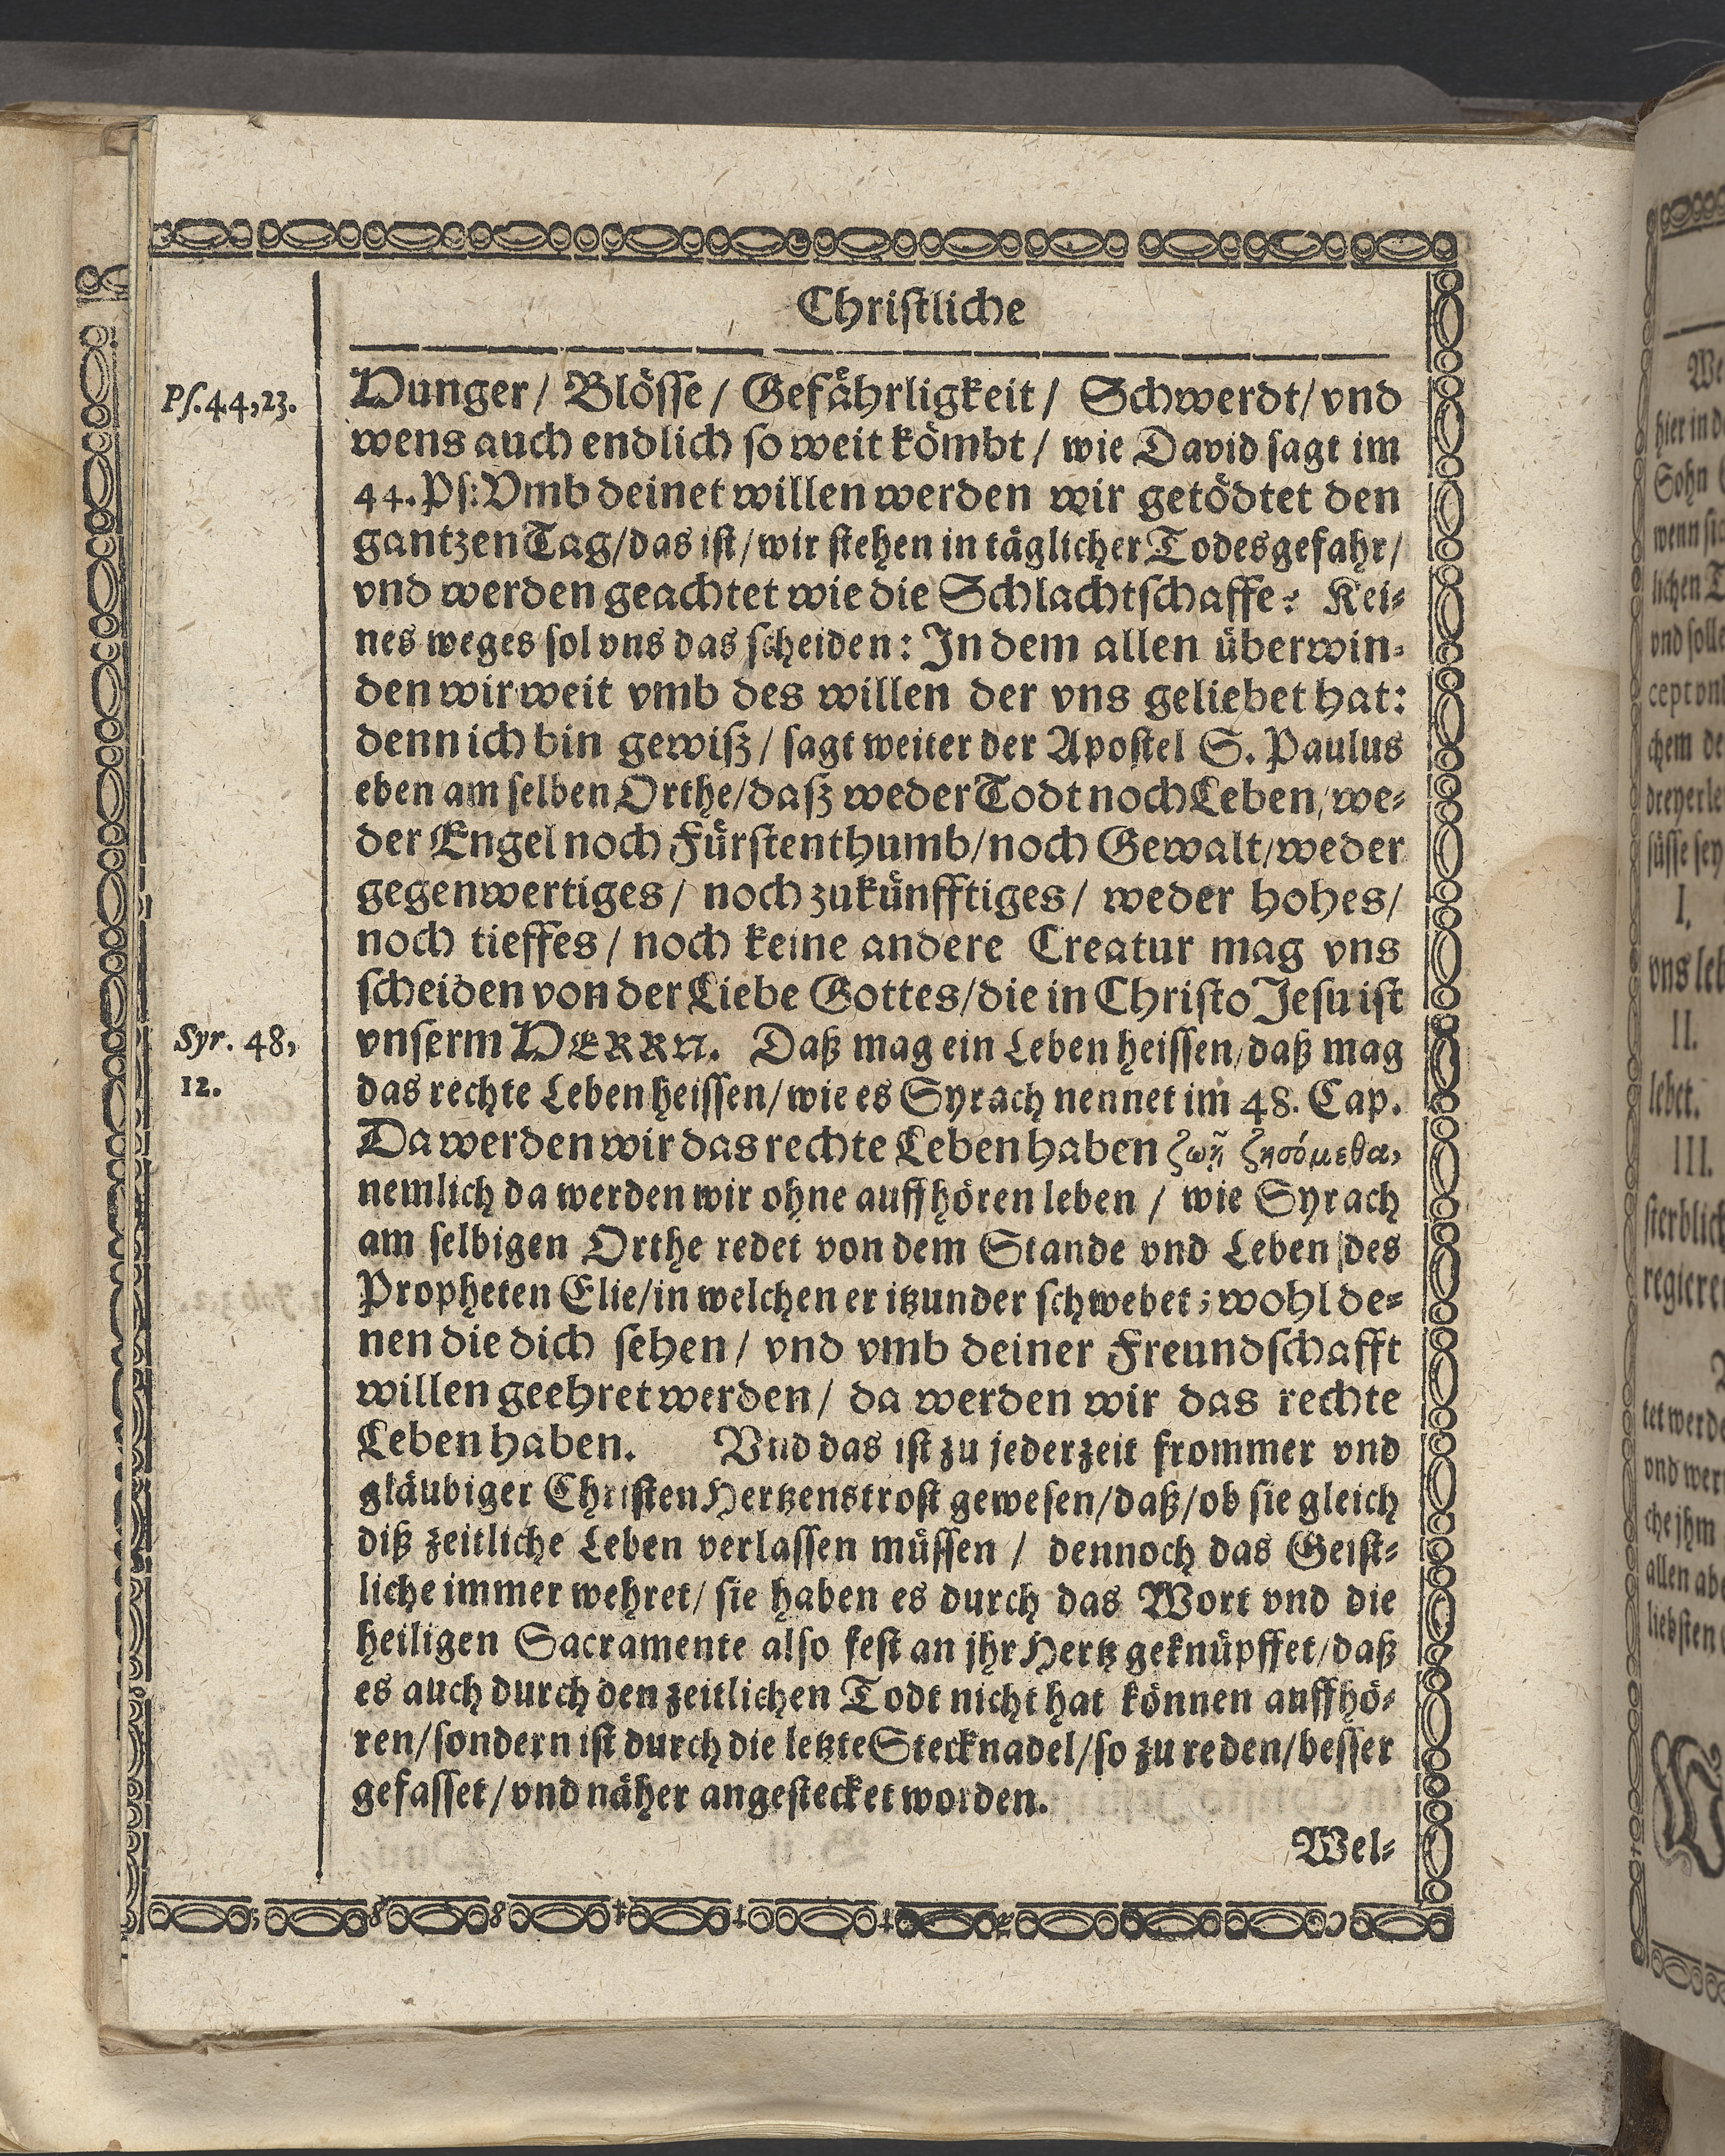 Christliche
Pſ.44,23.
Hunger/ Blöſſe/ Gefährligkeit/ Schwerdt/ vnd
wens auch endlich ſo weit kömbt/ wie David ſagt im
44. Pſ: Vmb deinet willen werden wir getödtet den
gantzen Tag/ das iſt/ wir ſtehen in täglicher Todesgefahr/
vnd werden geachtet wie die Schlachtſchaffe: Kei-
nes weges ſol vns das ſcheiden: In dem allen überwin-
den wir weit vmb des willen der vns geliebet hat:
denn ich bin gewiß/ ſagt weiter der Apoſtel S. Paulus
eben am ſelben Orthe/ daß weder Todt noch Leben/ we-
der Engel noch Fürſtenthumb/ noch Gewalt/ weder
gegenwertiges/ noch zukünfftiges/ weder hohes/
noch tieffes/ noch keine andere Creatur mag vns
ſcheiden von der Liebe Gottes/ die in Chriſto Jeſu iſt
Syr. 48,
12.
vnſerm HERRN. Daß mag ein Leben heiſſen/ daß mag
das rechte Leben heiſſen/ wie es Syrach nennet im 48. Cap.
Da werden wir das rechte Leben haben ζωῇ ζησόμεθα,
nemlich da werden wir ohne auffhören leben / wie Syrach
am ſelbigen Orthe redet von dem Stande vnd Leben des
Propheten Elie/ in welchen er itzunder ſchwebet; wohl de-
nen die dich ſehen/ vnd vmb deiner Freundſchafft
willen geehret werden/ da werden wir das rechte
Leben haben. Vnd das iſt zu jederzeit frommer vnd
gläubiger Chriſten Hertzenstroſt geweſen/ daß/ ob ſie gleich
diß zeitliche Leben verlaſſen müſſen / dennoch das Geiſt-
liche immer wehret/ ſie haben es durch das Wort vnd die
heiligen Sacramente alſo feſt an jhr Hertz geknüpffet/ daß
es auch durch den zeitlichen Todt nicht hat können auffhö-
ren/ ſondern iſt durch die letzte Stecknadel/ ſo zu reden/ beſſer
gefaſſet/ vnd näher angeſtecket worden.
Wel-
We
hier in d
Sohn
wenn ſic
lichen T
vnd ſolle
cept vn
chem de
dreyerle
ſüſſe ſey
I.
vns leb
II.
lebet.
III.
ſterblich
regieret
tet werde
vnd wer
che jhm
allen abe
liebſten